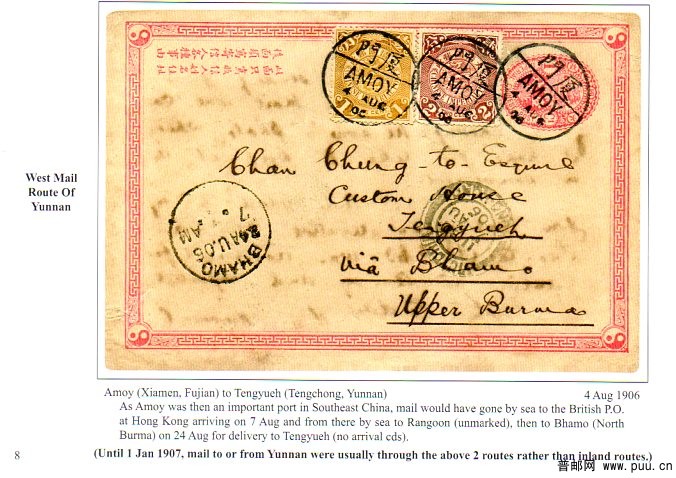 West Mail
Route Of
Yunnan
廈門
AMOY
4 AUG
06
廈門
AMOY
4 AUG
06
廈門
AMOY
4 AUG
06
1
2
Chan Chung-to-Esquire
Custom House
Tengyueh
Viâ Bhamo
Upper Burma
BHAMO
24 AU.06
7. AM
Amoy (Xiamen, Fujian) to Tengyueh (Tengchong, Yunnan) 4 Aug 1906
As Amoy was then an important port in Southeast China, mail would have gone by sea to the British P.O.
at Hong Kong arriving on 7 Aug and from there by sea to Rangoon (unmarked), then to Bhamo (North
Burma) on 24 Aug for delivery to Tengyueh (no arrival cds).
8
(Until 1 Jan 1907, mail to or from Yunnan were usually through the above 2 routes rather than inland routes.)
普邮网 www.puu.cn